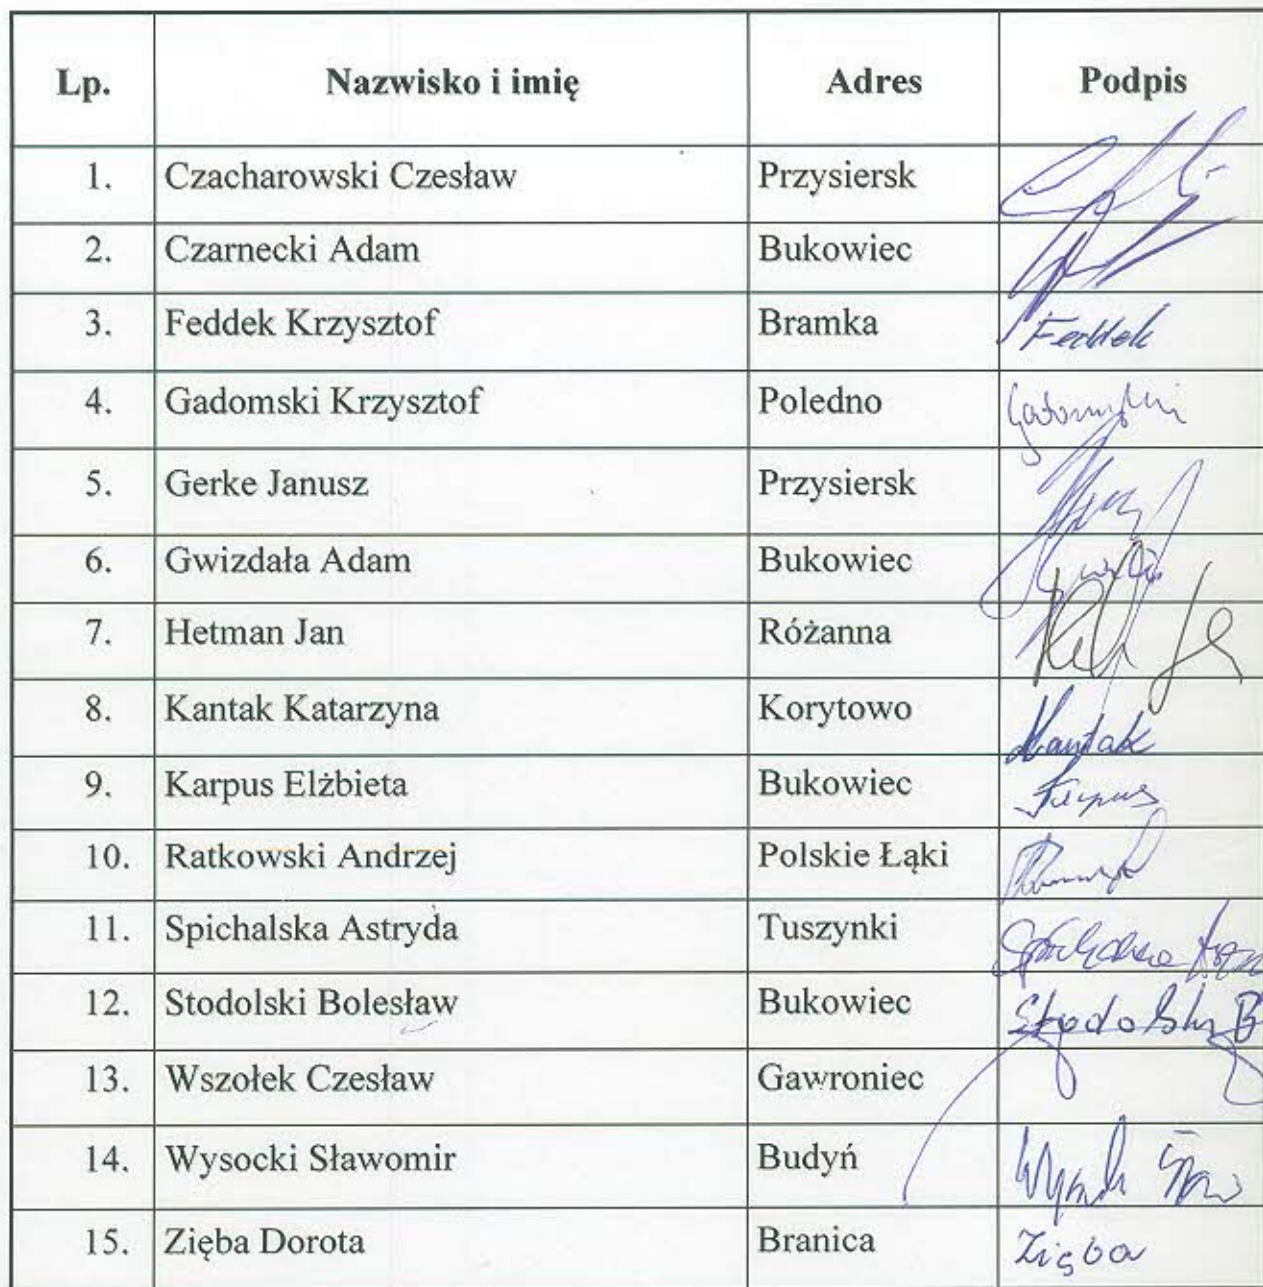 Lp. Nazwisko i imię Adres Podpis
1. Czacharowski Czesław Przysiersk
2. Czarnecki Adam Bukowiec
3. Feddek Krzysztof Bramka Feddek
4. Gadomski Krzysztof Poledno Gadomski
5. Gerke Janusz Przysiersk
6. Gwizdała Adam Bukowiec
7. Hetman Jan Różanna
8. Kantak Katarzyna Korytowo Kantak
9. Karpus Elżbieta Bukowiec Karpus
10. Ratkowski Andrzej Polskie Łąki
11. Spichalska Astryda Tuszynki
12. Stodolski Bolesław Bukowiec Stodolski B
13. Wszołek Czesław Gawroniec
14. Wysocki Sławomir Budyń
15. Zięba Dorota Branica Zięba